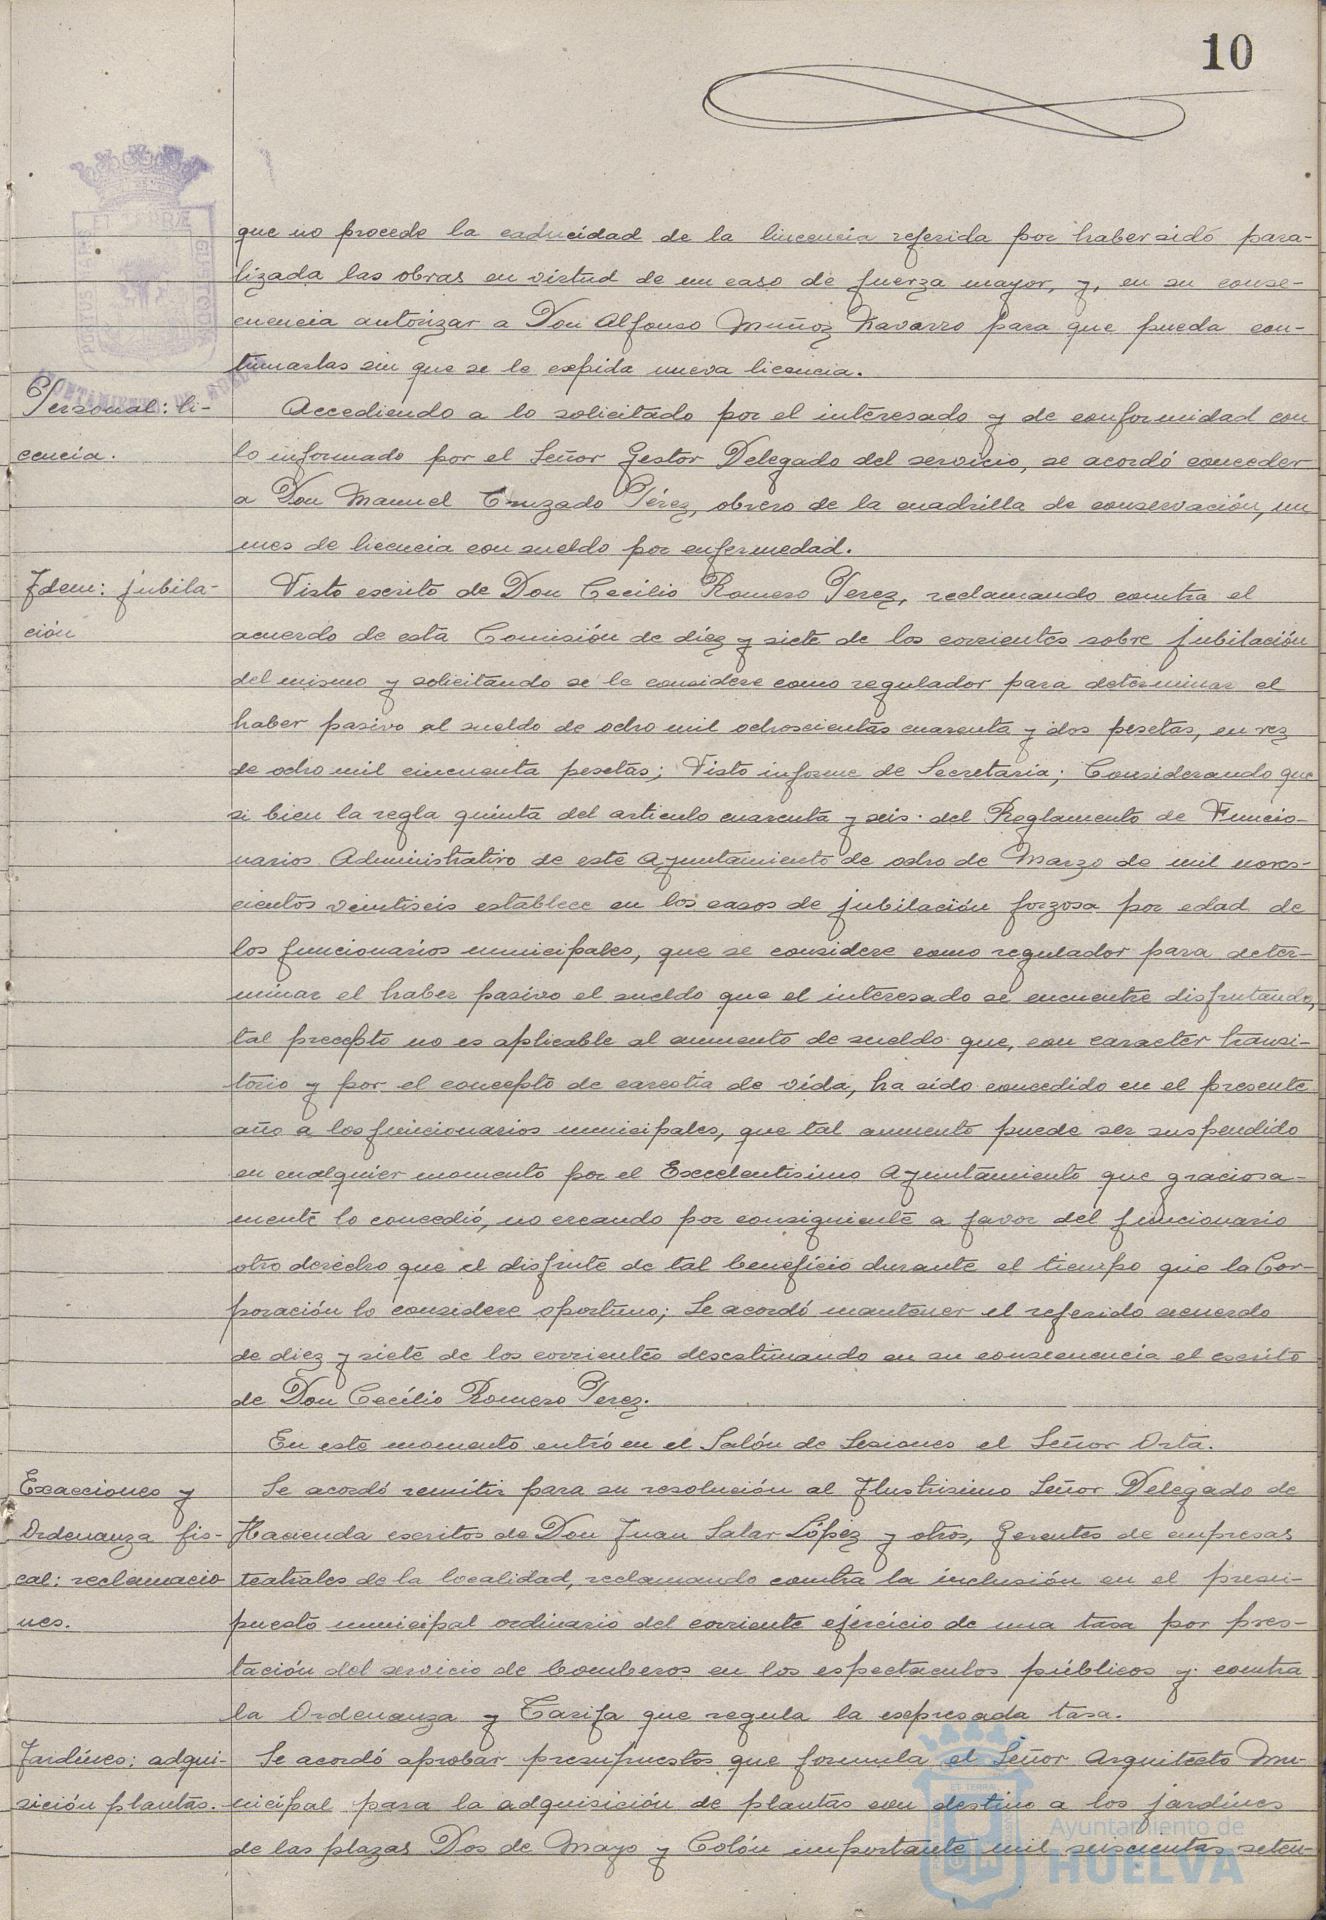 10
que no procede la caducidad de la lincencia referida por haber sido para-
lizada las obras en virtud de un caso de fuerza mayor, y, en su conse-
cuencia autorizar a Don Alfonso Muñoz Navarro para que pueda con-
tinuarlas sin que se le expida nueva licencia.
Personal: li-
cencia.
Accediendo a lo solicitado por el interesado y de conformidad con
lo informado por el Señor Gestor Delegado del servicio, se acordó conceder
a Don Manuel Cruzado Pérez, obrero de la cuadrilla de conservación, un
mes de licencia con sueldo por enfermedad.
Idem: jubila-
ción
Visto escrito de Don Cecilio Romero Perez, reclamando contra el
acuerdo de esta Comisión de diez y siete de los corrientes sobre jubilación
del mismo y solicitando se le considere como regulador para determinar el
haber pasivo al sueldo de ocho mil ochoscientas cuarenta y dos pesetas, en vez
de ocho mil cincuenta pesetas; Visto informe de Secretaria; Considerando que
si bien la regla quinta del articulo cuarenta y seis del Reglamento de Funcio-
narios Administrativo de este Ayuntamiento de ocho de Marzo de mil noves-
cientos veintiseis establece en los casos de jubilación forzosa por edad de
los funcionarios municipales, que se considere como regulador para deter-
minar el haber pasivo el sueldo que el interesado se encuentre disfrutando,
tal precepto no es aplicable al aumento de sueldo que, con caracter transi-
torio y por el concepto de carestia de vida, ha sido concedido en el presente
año a los funcionarios municipales, que tal aumento puede ser suspendido
en cualquier momento por el Excelentisimo Ayuntamiento que graciosa-
mente lo concedió, no creando por consiguiente a favor del funcionario
otro derecho que el disfrute de tal beneficio durante el tiempo que la Cor-
poración lo considere oportuno; Se acordó mantener el referido acuerdo
de diez y siete de los corrientes desestimando en su consecuencia el escrito
de Don Cecilio Romero Perez.
En este momento entró en el Salón de Sesiones el Señor Orta.
Exacciones y
Ordenanza fis-
cal: reclamacio
nes.
Se acordó remitir para su resolución al Ilustrisimo Señor Delegado de
Hacienda escritos de Don Juan Salar López y otros, Gerentes de empresas
teatrales de la localidad, reclamando contra la inclusión en el presu-
puesto municipal ordinario del corriente ejercicio de una tasa por pres-
tación del servicio de bomberos en los espectaculos públicos y contra
la Ordenanza y Tarifa que regula la expresada tasa.
Jardines: adqui-
sición plantas.
Se acordó aprobar presupuestos que formula el Señor Arquitecto Mu-
nicipal para la adquisición de plantas con destino a los jardines
de las plazas Dos de Mayo y Colón importante mil seiscientas seten-
Ayuntamiento de
HUELVA